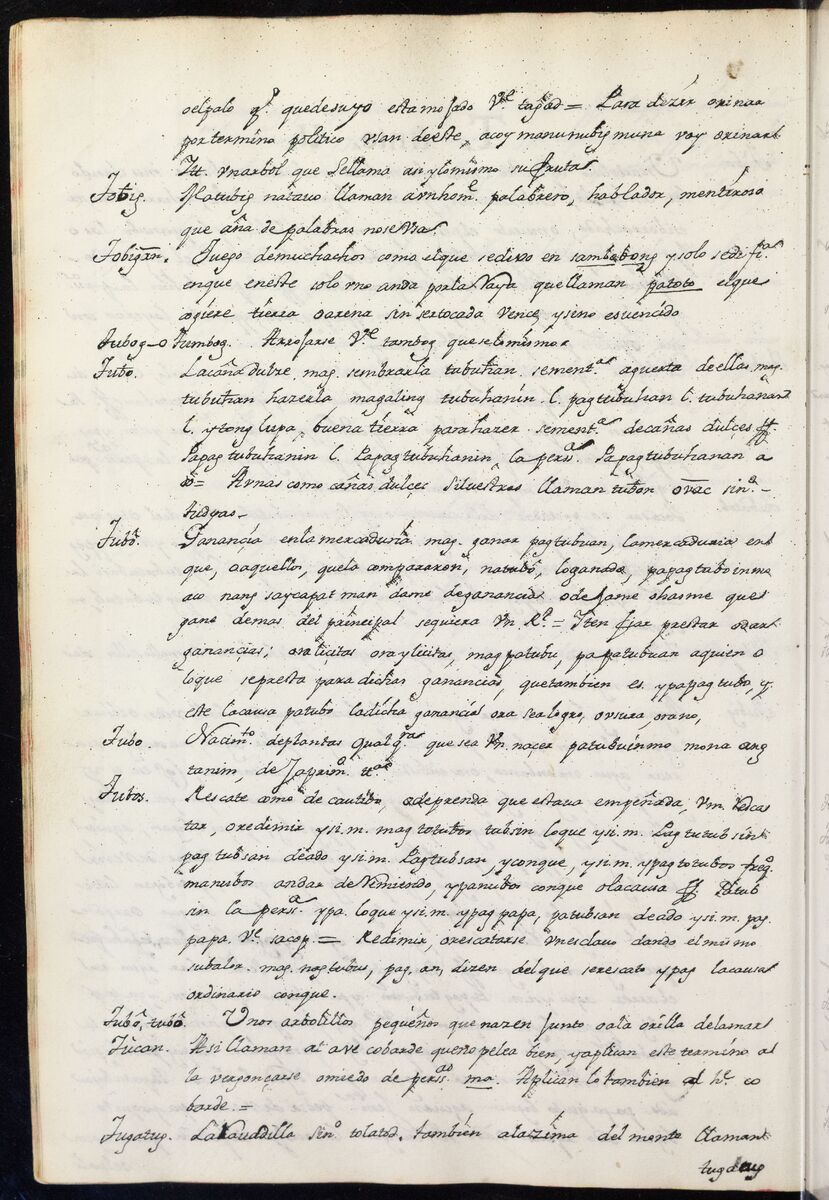 oelpalo q.e quedesuyo estamojado V.e tagad = Para dezir orinar
por termino politico usan deeste, acoy manunubig muna voy orinar
It. vnarbol que Sellama asi y lo mismo su fruta.
Tobig. Matubig natauo llaman aunhom.e palabrero, hablador, mentiroso
que agua de palabras nose Usa
Tobigan. Juego demuchachos como elque sedixo en sambabong y solo sedif.a
enque eneste solo vno anda porla Raya quellaman patoto elque
cogiere tierra oarena sin sertocada Vence, y sino es vencido
Tubog-o Tumbog. Arrojarse V.e tambog quees lo mismo
Tubo. La caña dulze mag. sembrarla tubuhan sement.a opuerta deellas mag.
tubuhan hazerla magaling tubuhanin l. pagtubuhan l. tubuhanan
l. ytong lupa, buena tierra para hazer sement.a decañas dulçes ff.
Papagtubuhanin l. Papagtubuhanin, la pers.a Papagtubuhanan a
do = Arnas como cañas dulçes silvestres llaman tubon ovac sin.o
tudyao-
Tubo. Ganançia enla mercaduria mag. ganar pagtubuan, lamercaduria en
que, oaquellos, quela compararon, natubo, loganado, papagtuboinmo
aco nang saycapat man dame deganancia odejame ohasme que
gane demas del principal sequiera Vn R.l = Iten fiar prestar odar
ganancias; ora licitas ora yliçitas, magpatubu, papatubuan aquien o
loque sepresta para dichas ganancias, que tambien es ypapagtubo, y
este lacausa patubo ladicha ganancia ora sealogro, ovsura, orano,
Tubo. Nacim.to deplantas qualq.ra que sea Vm. naçer patubuinmo mona ang
tanim,
Tubos. Rescate como de cautibo, odeprenda que estava empeñada, Vm. Rescat
tar, oredimir y si.m. magtotubos tubsin loque y si.m. Pagtutubsin
pagtubsan deado y si.m. Pagtubsan, yconque, y si.m. ypagtotubos freq.
manubos andar deRemiendo, ypanubos conque olacausa ff. Patub
sin la pers.a ypa. loque y si.m. ypagpapa, patubsan deado y si.m. pag.
papa. V.e sacop = Redimir, orescatarse vnesclauo dando el mismo
subalor. mag. nagtubus, pag. an, dizen del que serescato ypag lacausa
ordinario conque.
Tubo, tubo. Unos arbolillos pequeños que nazen junto oala orilla delamar
Tucan. Asi llaman al ave cobarde queno pelea bien, yaplican este termino al
la vergonçarse omiedo de pers.as ma. Aplican lo tambien al h.e co
barde. =
Tugatug. La Rauadilla sin.o tolatod. tambien alazima del monte llaman
tugatug